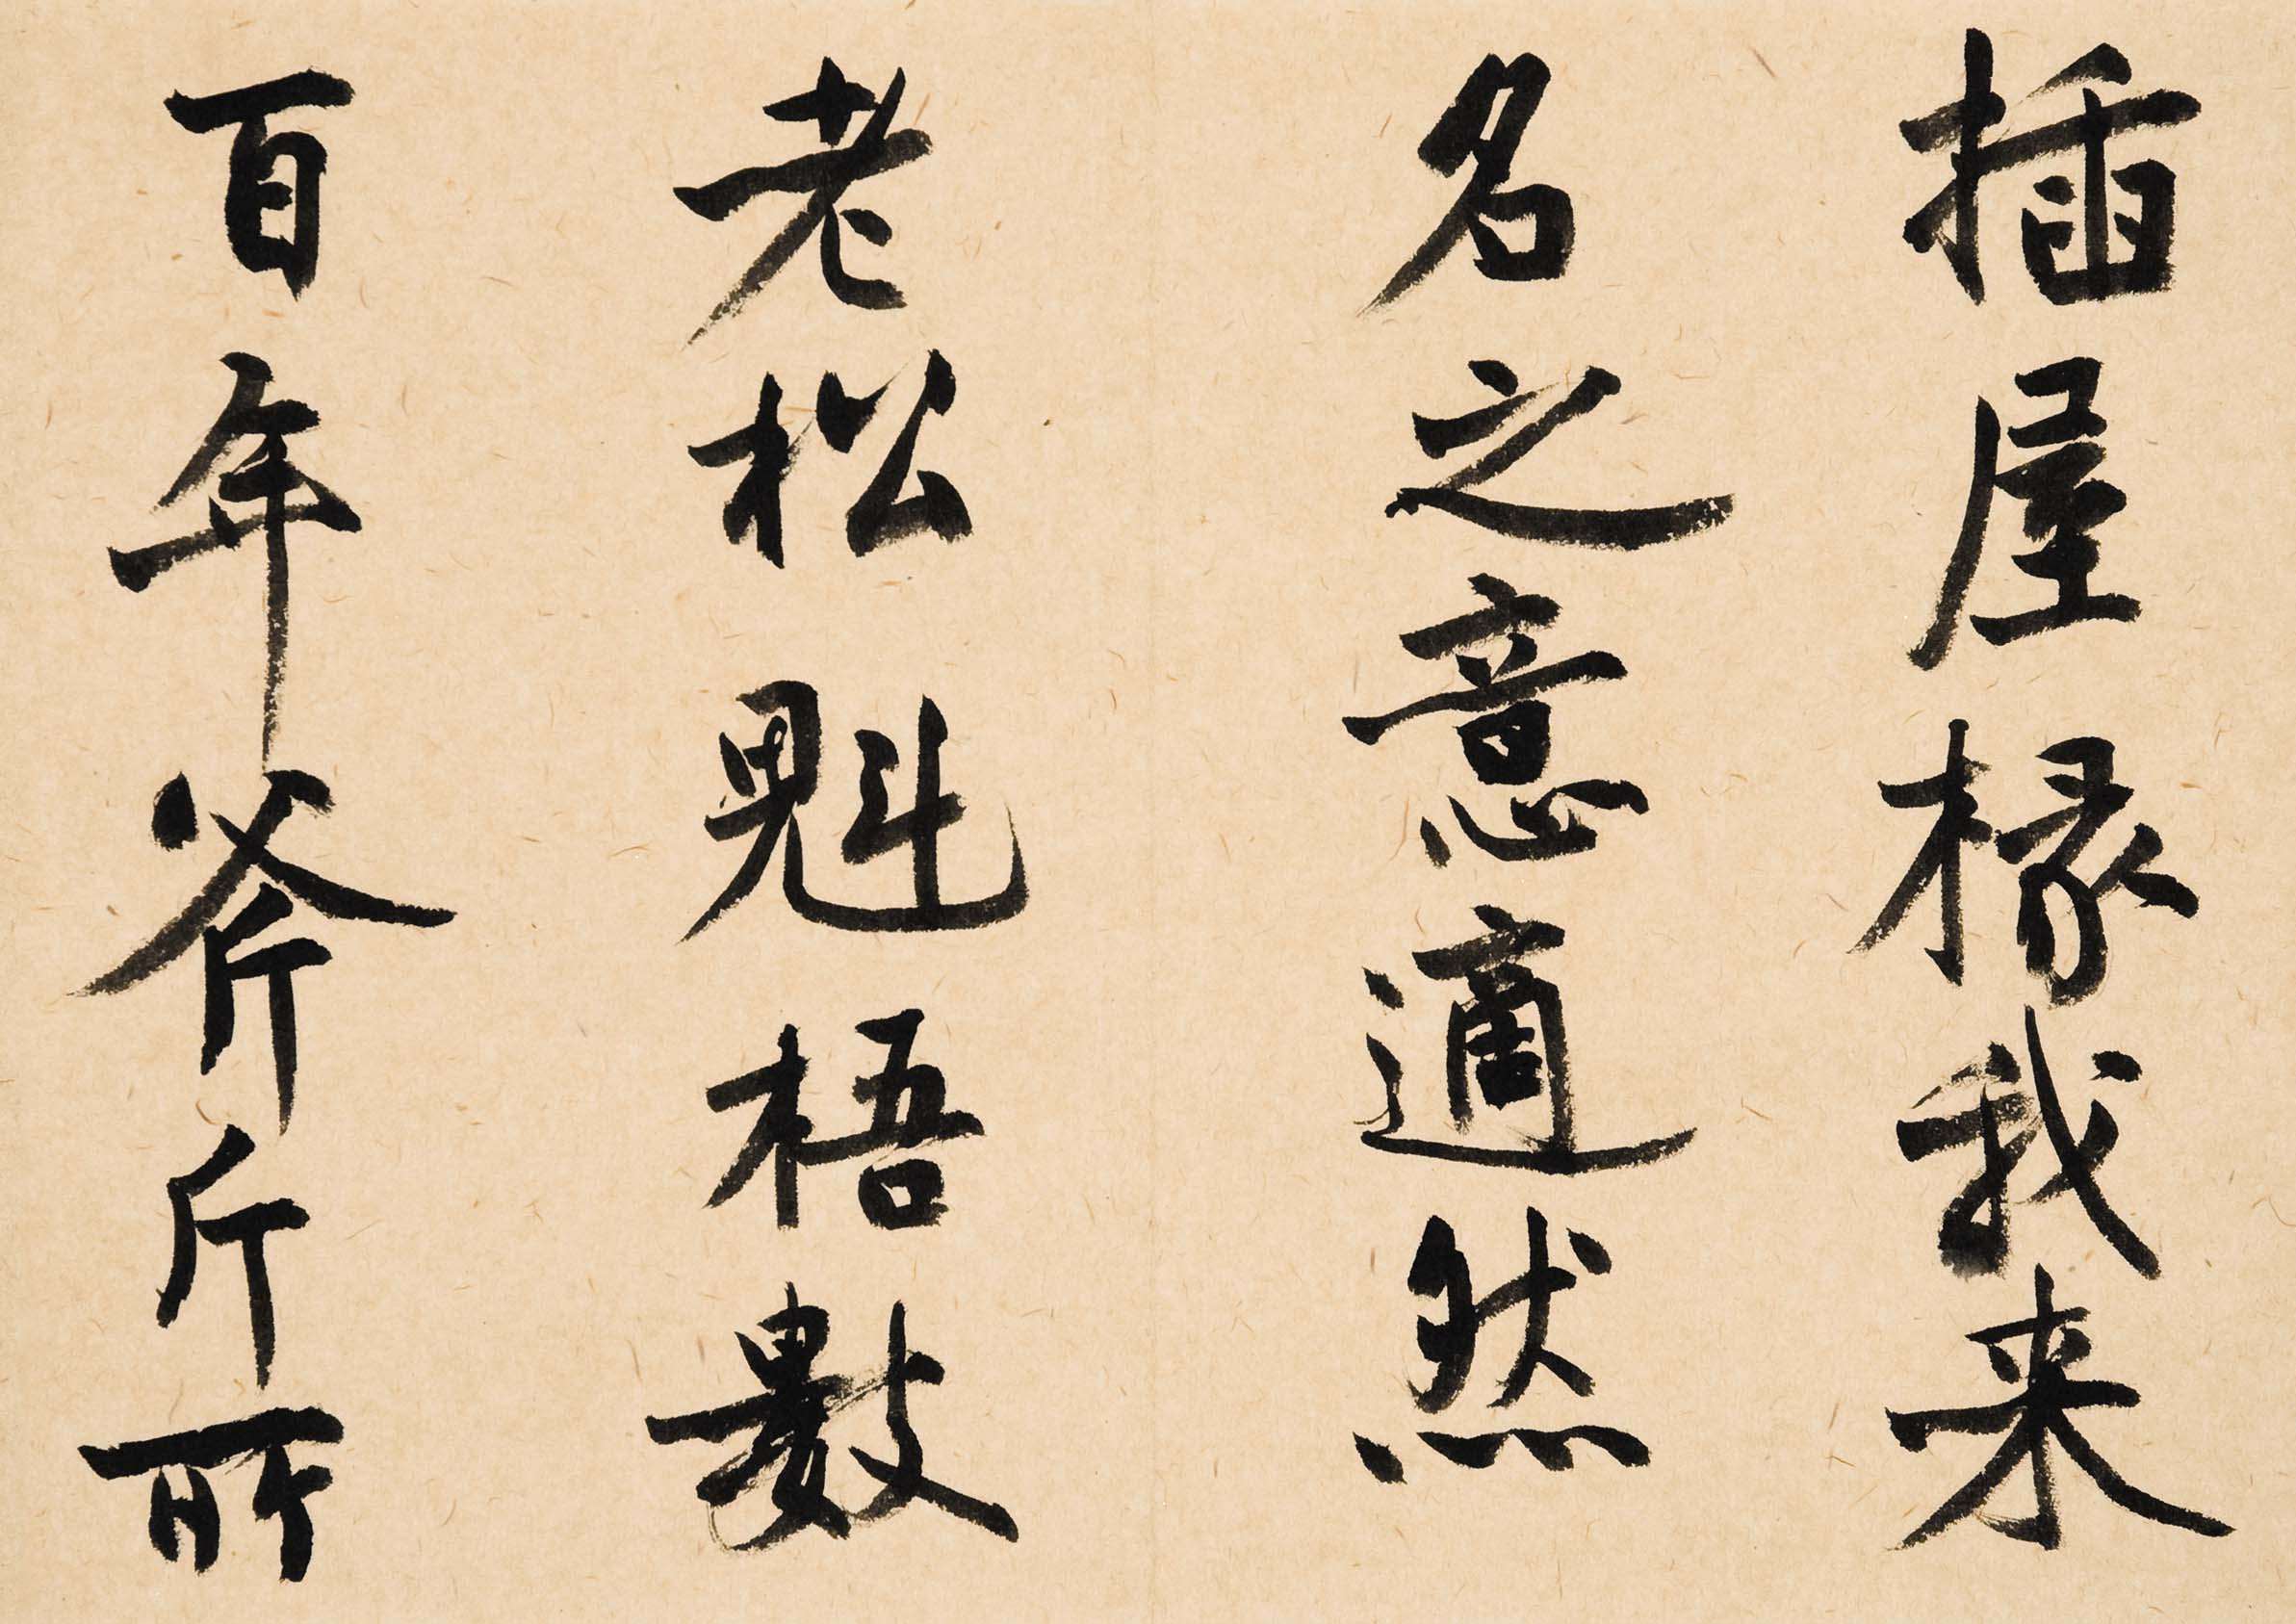 插屋椽我来
名之意適然
老松魁梧數
百年斧斤所